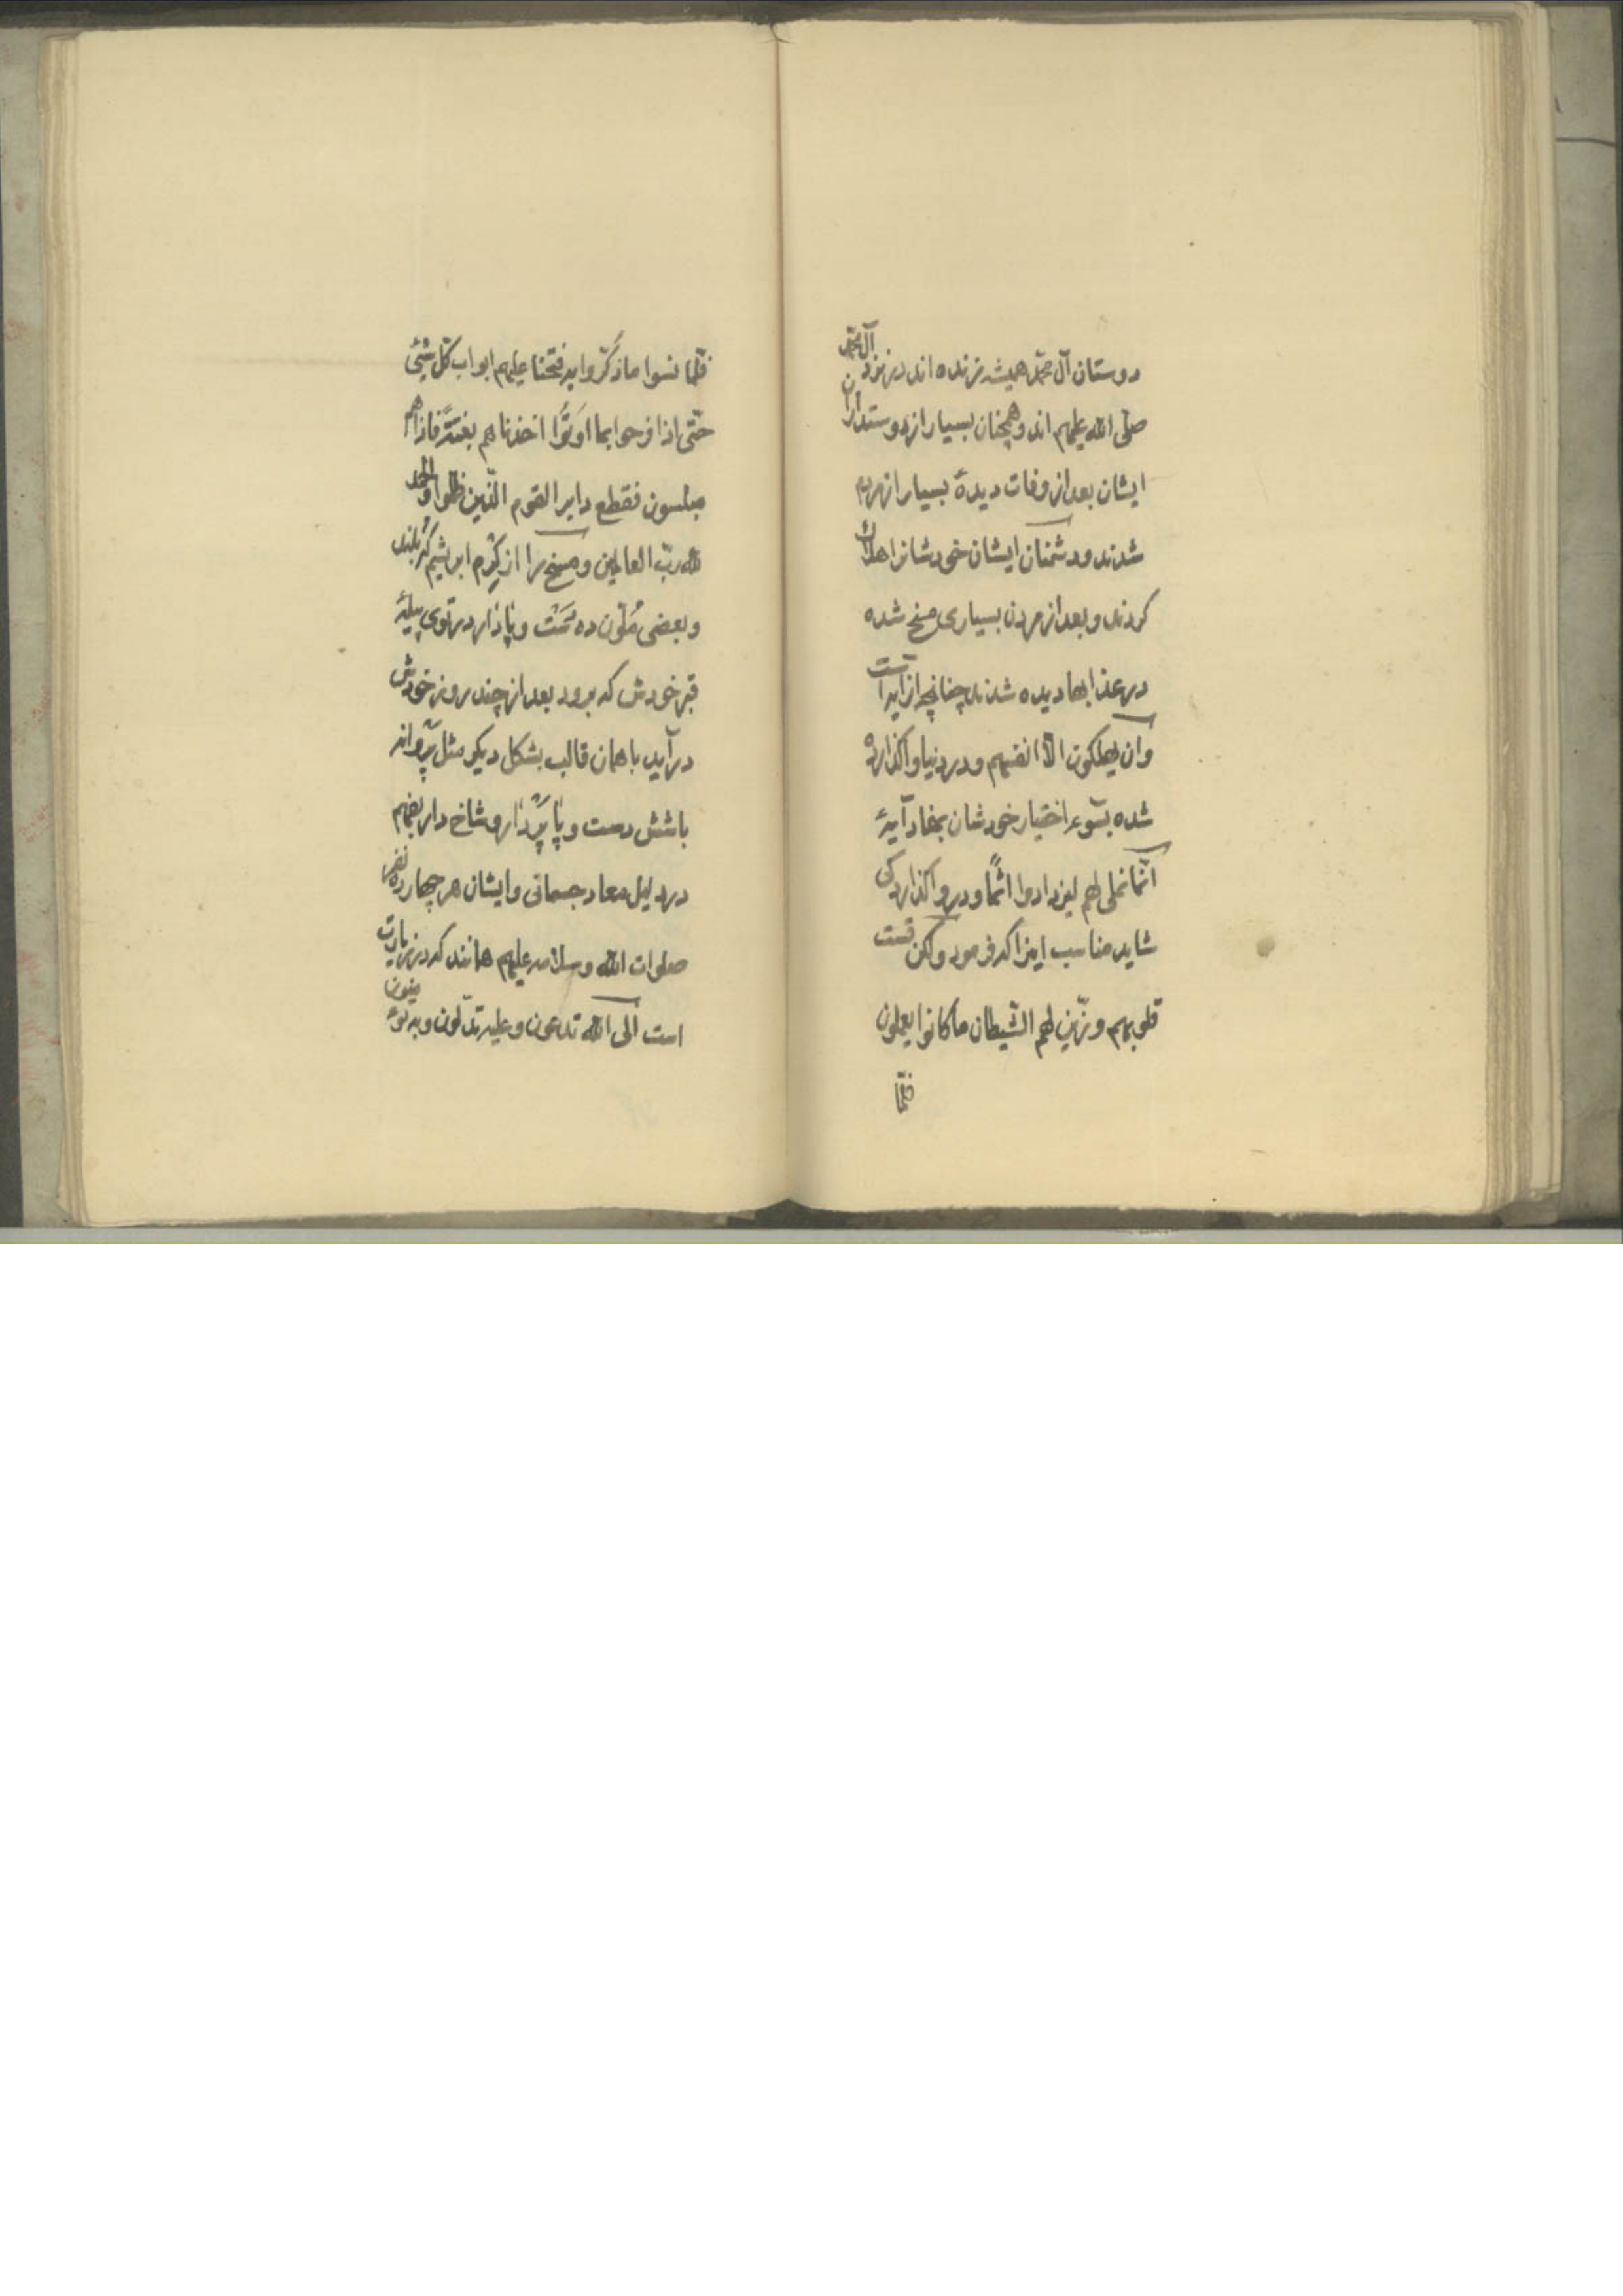 دوستان آل محمّد همیشه زنده اند در نزد آل محمّد
صلّی الله علیهم اند و همچنان بسیار از دوستداران
ایشان بعد از وفات دیدهٔ بسیار از مردم
شدند و دشمنان ایشان خودشانرا هلاک
کردند و بعد از مردن بسیاری مسخ شده
در عذابها دیده شدند چنانچه از آیه است
وان یهلکون الّا انفسهم و در دنیا واگذارده
شده بسوء اختیار خودشان بمفاد آیهٔ
انّما نملی لهم لیزدادوا اثماً و در واگذاردگی
شاید مناسب اینرا که فرمود ولکن قست
قلوبهم و زیّن لهم الشّیطان ما کانوا یعملون
فلمّا
فلمّا نسوا ما ذُکّروا به فتحنا علیهم ابواب کلّ شیئی
حتّی اذا فرحوا بما اوتوا اخذناهم بغتتةً فاذا هم
مبلسون فقطع دابر القوم الّذین ظلموا والحمد
لله ربّ العالمین و مسخ را از کِرم ابریشم
و بعضی مُلّون ده و پا دار در توی پیلهٔ
قبر خودش که برود بعد از چند روز خودش
در آید با همان قالب بشکل دیکر مثل پروانه
با شش دست و پا پردار و شاخ دار بفهم
در دلیل معاد جسمانی و ایشان هر چهارده نفر
صلوات الله و سلامه علیهم همانند که در زیارت
است الی الله تدعون و علیه تدلّون و به تؤمنون